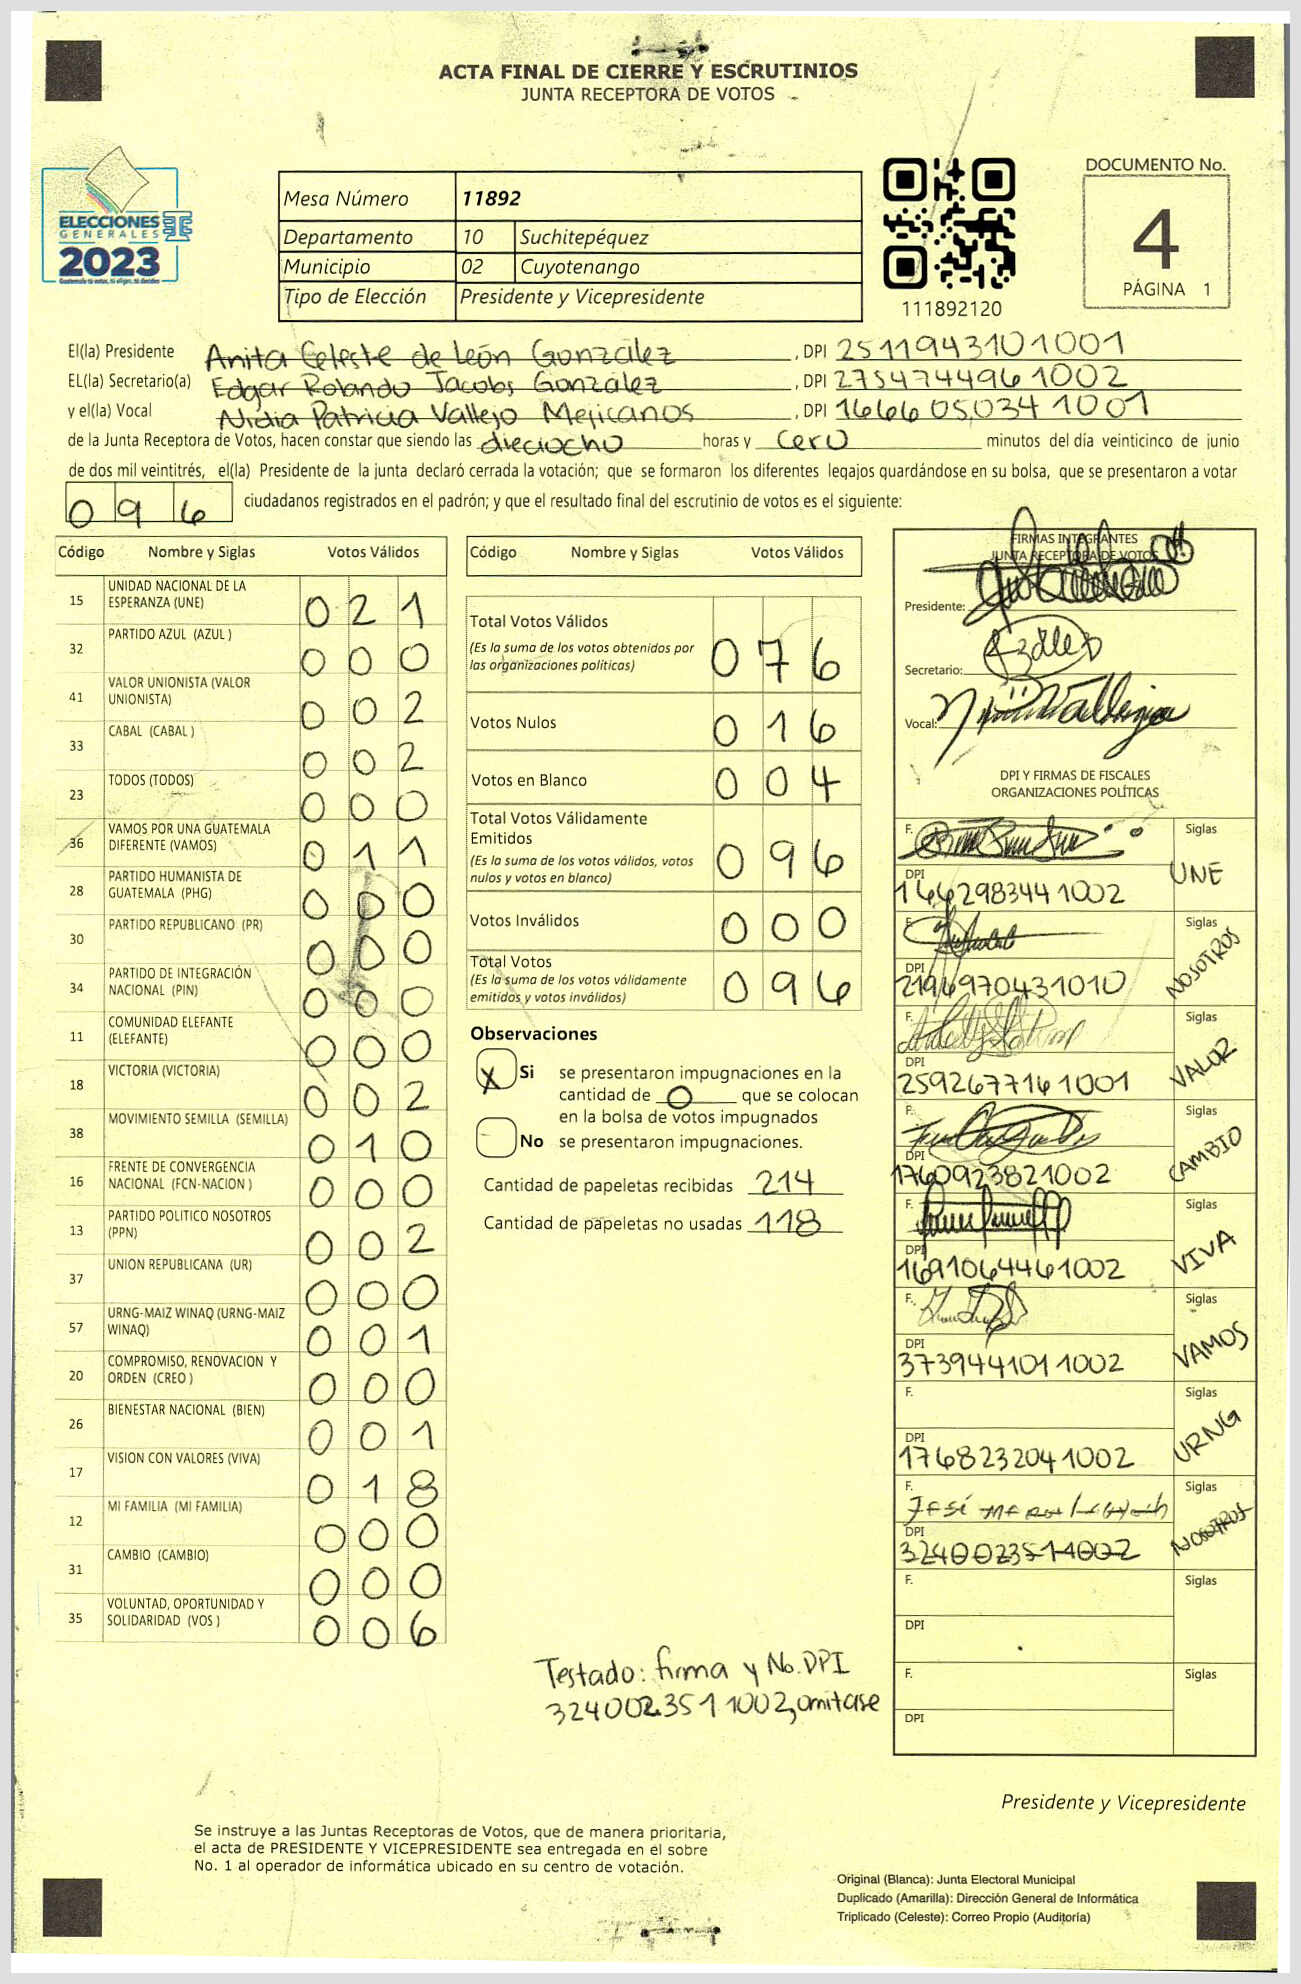 ACTA FINAL DE CIERRE Y ESCRUTINIOS
JUNTA RECEPTORA DE VOTOS
ELECCIONES
GENERALES
2023
TSE
Mesa Número 11892
Departamento 10 Suchitepéquez
Municipio 02 Cuyotenango
Tipo de Elección Presidente y Vicepresidente
111892120
DOCUMENTO No.
4
PÁGINA 1
El(la) Presidente Anita Celeste de León González, DPI 2511943101001
EL(la) Secretario(a) Edgar Rolando Jacobs González, DPI 2754744961002
y el(la) Vocal Nidia Patricia Vallejo Mejicanos, DPI 1666050341001
de la Junta Receptora de Votos, hacen constar que siendo las dieciocho horas y cero minutos del día veinticinco de junio
de dos mil veintitrés, el(la) Presidente de la junta declaró cerrada la votación; que se formaron los diferentes legajos guardándose en su bolsa, que se presentaron a votar
096 ciudadanos registrados en el padrón; y que el resultado final del escrutinio de votos es el siguiente:
Código Nombre y Siglas Votos Válidos
15 UNIDAD NACIONAL DE LA ESPERANZA (UNE) 021
32 PARTIDO AZUL (AZUL ) 000
41 VALOR UNIONISTA (VALOR UNIONISTA) 002
33 CABAL (CABAL ) 002
23 TODOS (TODOS) 000
36 VAMOS POR UNA GUATEMALA DIFERENTE (VAMOS) 011
28 PARTIDO HUMANISTA DE GUATEMALA (PHG) 000
30 PARTIDO REPUBLICANO (PR) 000
34 PARTIDO DE INTEGRACIÓN NACIONAL (PIN) 000
11 COMUNIDAD ELEFANTE (ELEFANTE) 000
18 VICTORIA (VICTORIA) 002
38 MOVIMIENTO SEMILLA (SEMILLA) 010
16 FRENTE DE CONVERGENCIA NACIONAL (FCN-NACION ) 000
13 PARTIDO POLITICO NOSOTROS (PPN) 002
37 UNION REPUBLICANA (UR) 000
57 URNG-MAIZ WINAQ (URNG-MAIZ WINAQ) 001
20 COMPROMISO, RENOVACION Y ORDEN (CREO ) 000
26 BIENESTAR NACIONAL (BIEN) 001
17 VISION CON VALORES (VIVA) 018
12 MI FAMILIA (MI FAMILIA) 000
31 CAMBIO (CAMBIO) 000
35 VOLUNTAD, OPORTUNIDAD Y SOLIDARIDAD (VOS ) 006
Código Nombre y Siglas Votos Válidos
Total Votos Válidos 076
(Es la suma de los votos obtenidos por
las organizaciones políticas)
Votos Nulos 016
Votos en Blanco 004
Total Votos Válidamente
Emitidos 096
(Es la suma de los votos válidos, votos
nulos y votos en blanco)
Votos Inválidos 000
Total Votos 096
(Es la suma de los votos válidamente
emitidos y votos inválidos)
Observaciones
X Si se presentaron impugnaciones en la
cantidad de 0 que se colocan
en la bolsa de votos impugnados
No se presentaron impugnaciones.
Cantidad de papeletas recibidas 214
Cantidad de papeletas no usadas 118
Testado: firma y No. DPI
3240023511002, omitase
FIRMAS INTEGRANTES
JUNTA RECEPTORA DE VOTOS
Presidente:
Secretario:
Vocal:
DPI Y FIRMAS DE FISCALES
ORGANIZACIONES POLÍTICAS
F. Siglas UNE
DPI 1662983441002
F. Siglas NOSOTROS
DPI 2196970431010
F. Siglas VALOR
DPI 2592677161001
F. Siglas CAMBIO
DPI 1760923821002
F. Siglas VIVA
DPI 1691064461002
F. Siglas VAMOS
DPI 3739441011002
F. Siglas URNG
DPI 1768232041002
F. Siglas NOSOTROS
DPI 3240023511002
F. Siglas
DPI
F. Siglas
DPI
Presidente y Vicepresidente
Se instruye a las Juntas Receptoras de Votos, que de manera prioritaria,
el acta de PRESIDENTE Y VICEPRESIDENTE sea entregada en el sobre
No. 1 al operador de informática ubicado en su centro de votación.
Original (Blanca): Junta Electoral Municipal
Duplicado (Amarilla): Dirección General de Informática
Triplicado (Celeste): Correo Propio (Auditoría)